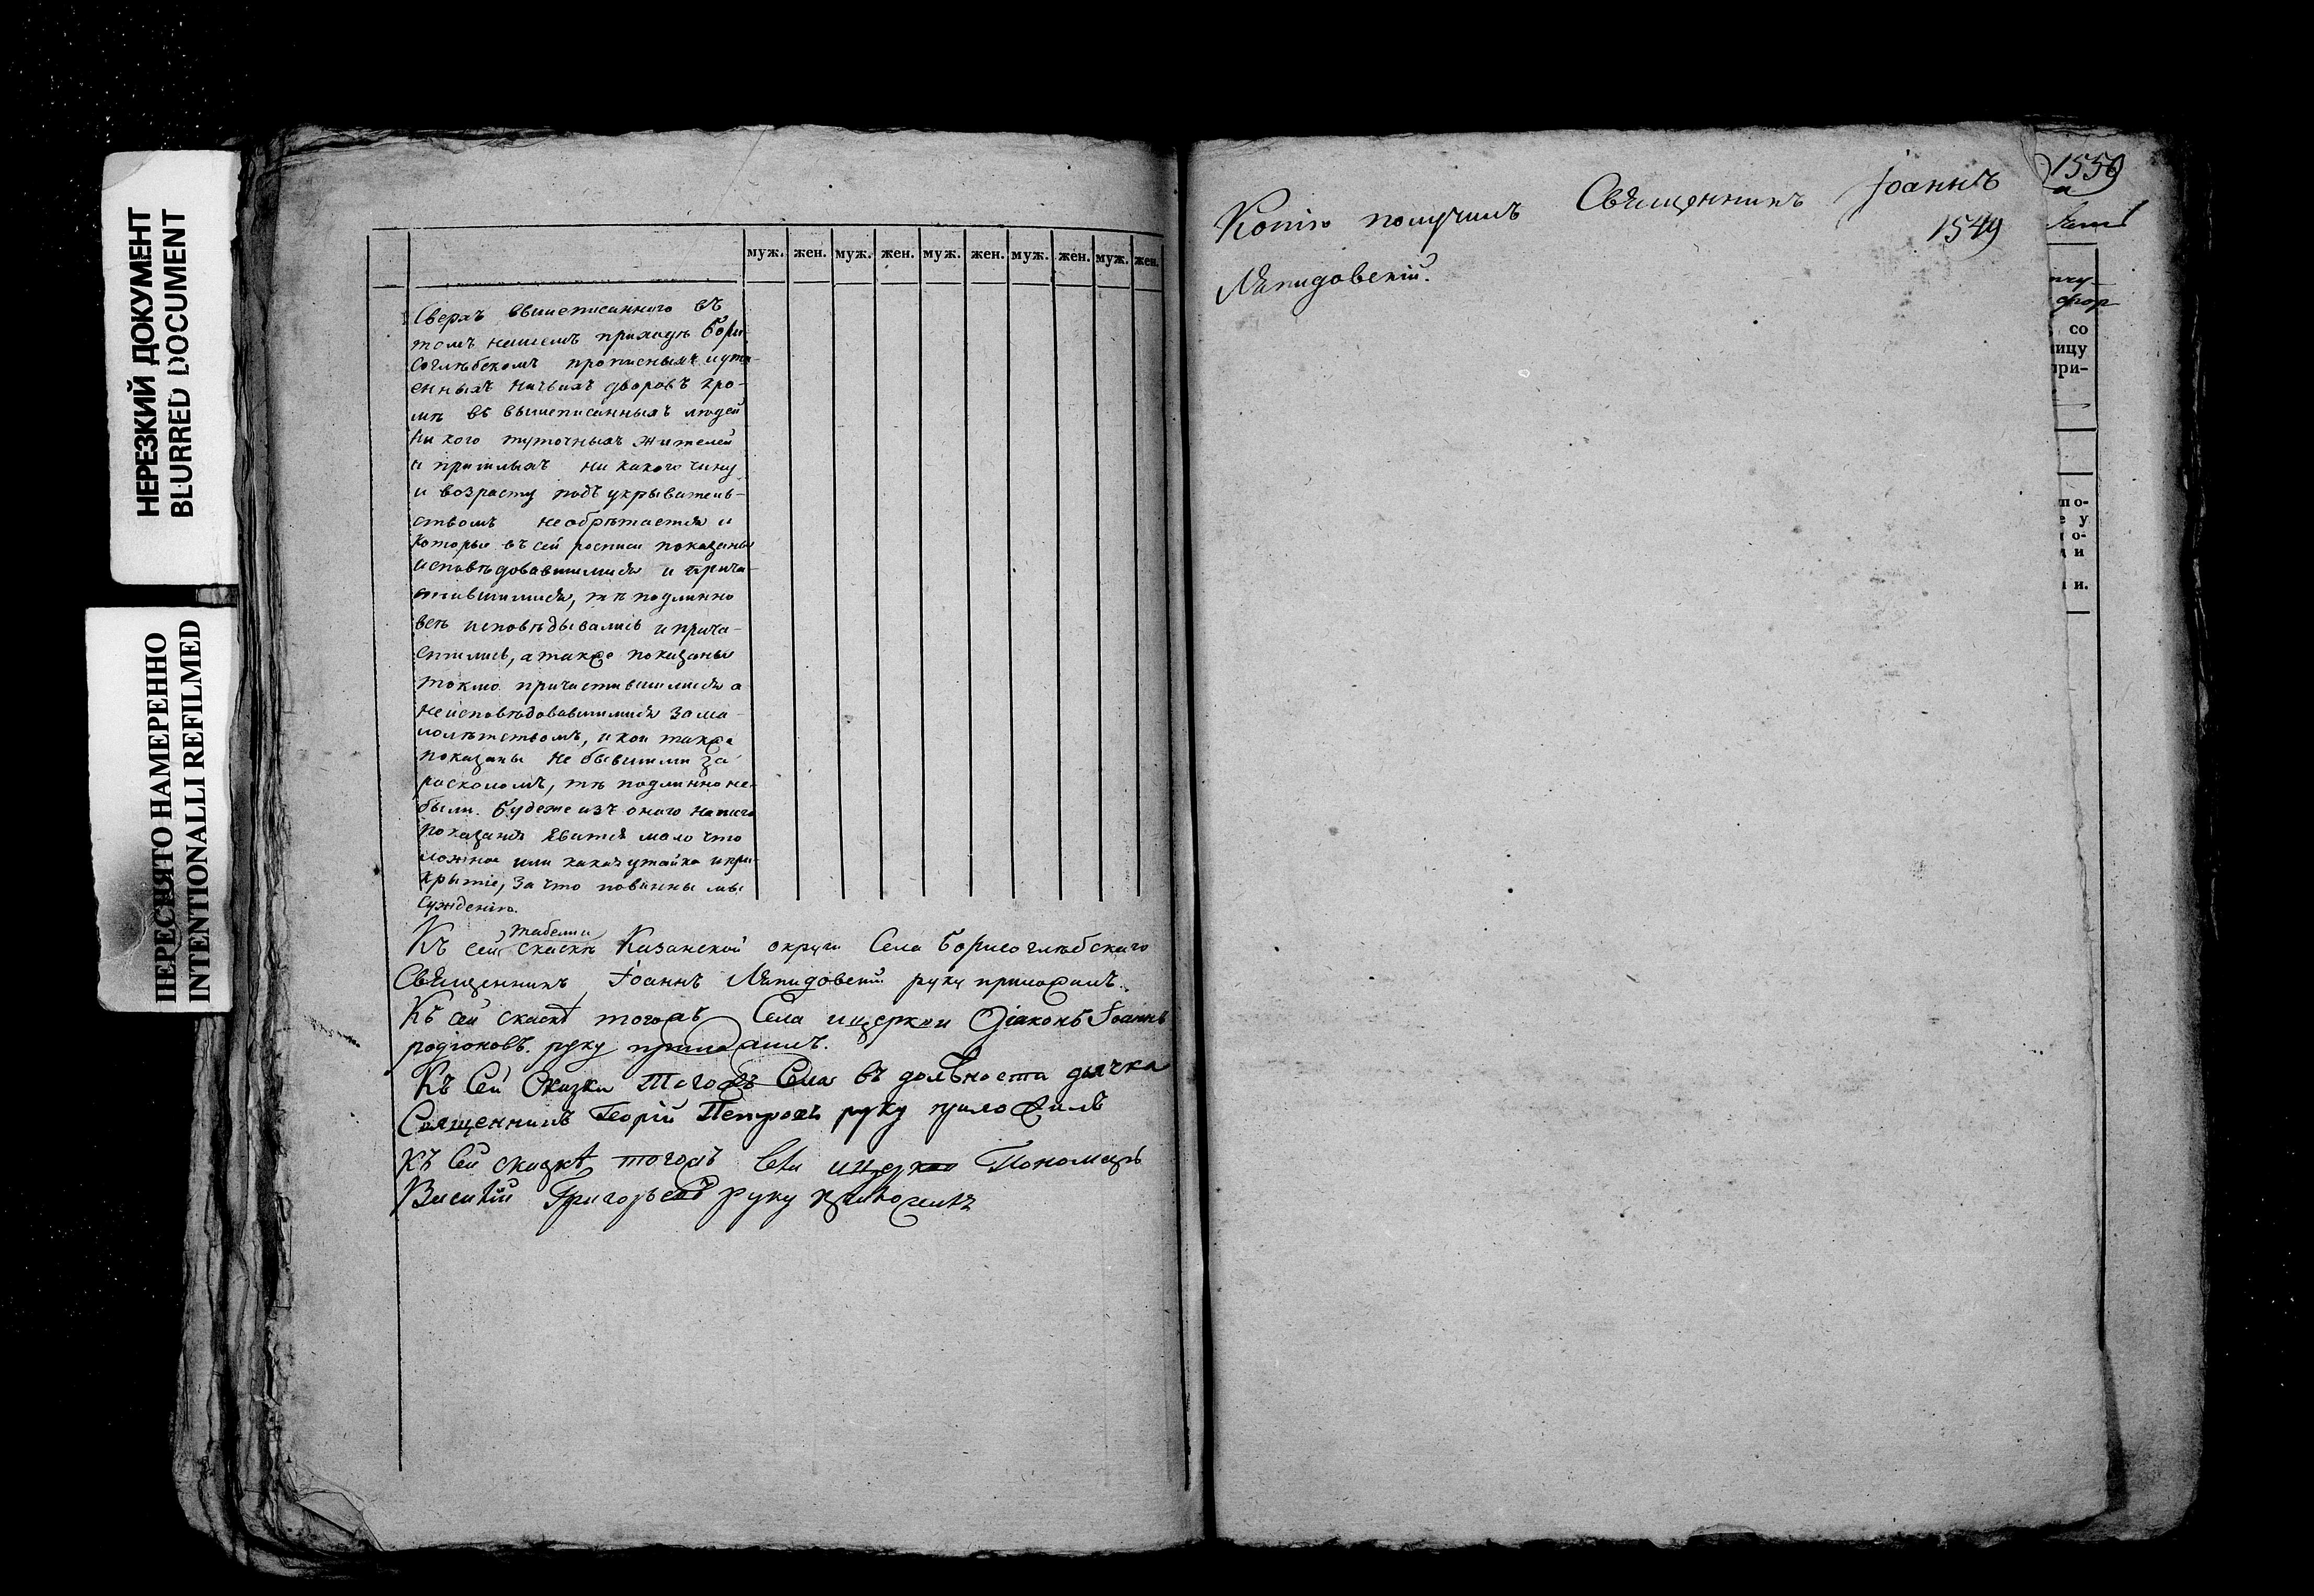 НЕРЕЗКИЙ ДОКУМЕНТ
BLURRED DOCUMENT
ПЕРЕСНЯТО НАМЕРЕННО
INTENTIONALLI REFILMED
муж. жен. муж. жен. муж. жен. муж. жен. муж. жен.
Сверхъ вышеписанного въ
томъ нашемъ приходѣ Бори
соглѣбскомъ прописныхъ и ута-
енныхъ ничьихъ дворовъ кро-
мѣ вышеписанныхъ людей
ни кого туточныхъ жителей
и пришлыхъ ни какого чину
и возрасту подъ укрыватель-
ствомъ не обрѣтается и
которые въ сей росписи показаны
исповѣдовавшимися и прича-
стившимися, тѣ подлинно
всѣ исповѣдывались и прича-
стились, а также показаны
токмо причастившимися а
неисповѣдовавшимися за ма-
лолѣтствомъ, и кои также
показаны не бывшими за
расколомъ, тѣ подлинно не-
были. Будеже изъ оного нашего
показания явится мало что
ложное или какая утайка и при-
крытіе, за что повинны мы
суждению.
табели
Къ сей скаскѣ Казанской округи Села Борисоглѣбскаго
Священникъ Іоаннъ Ляпидовскій руку приложилъ.
Къ сей скаскѣ тогожъ Села и церкви Діаконъ Іоаннъ
родіоновъ руку приложилъ.
Къ Сей Скаски Тогожъ Села въ должности дьячка
Священникъ Георгій Петровъ руку приложилъ
Къ Сей сказкѣ тогожъ Села и церкви Пономарь
Василій Григорьевъ руку приложилъ
Копію получилъ Священникъ Іоаннъ
1549
Ляпидовскій.
1550
со
ицу
при-